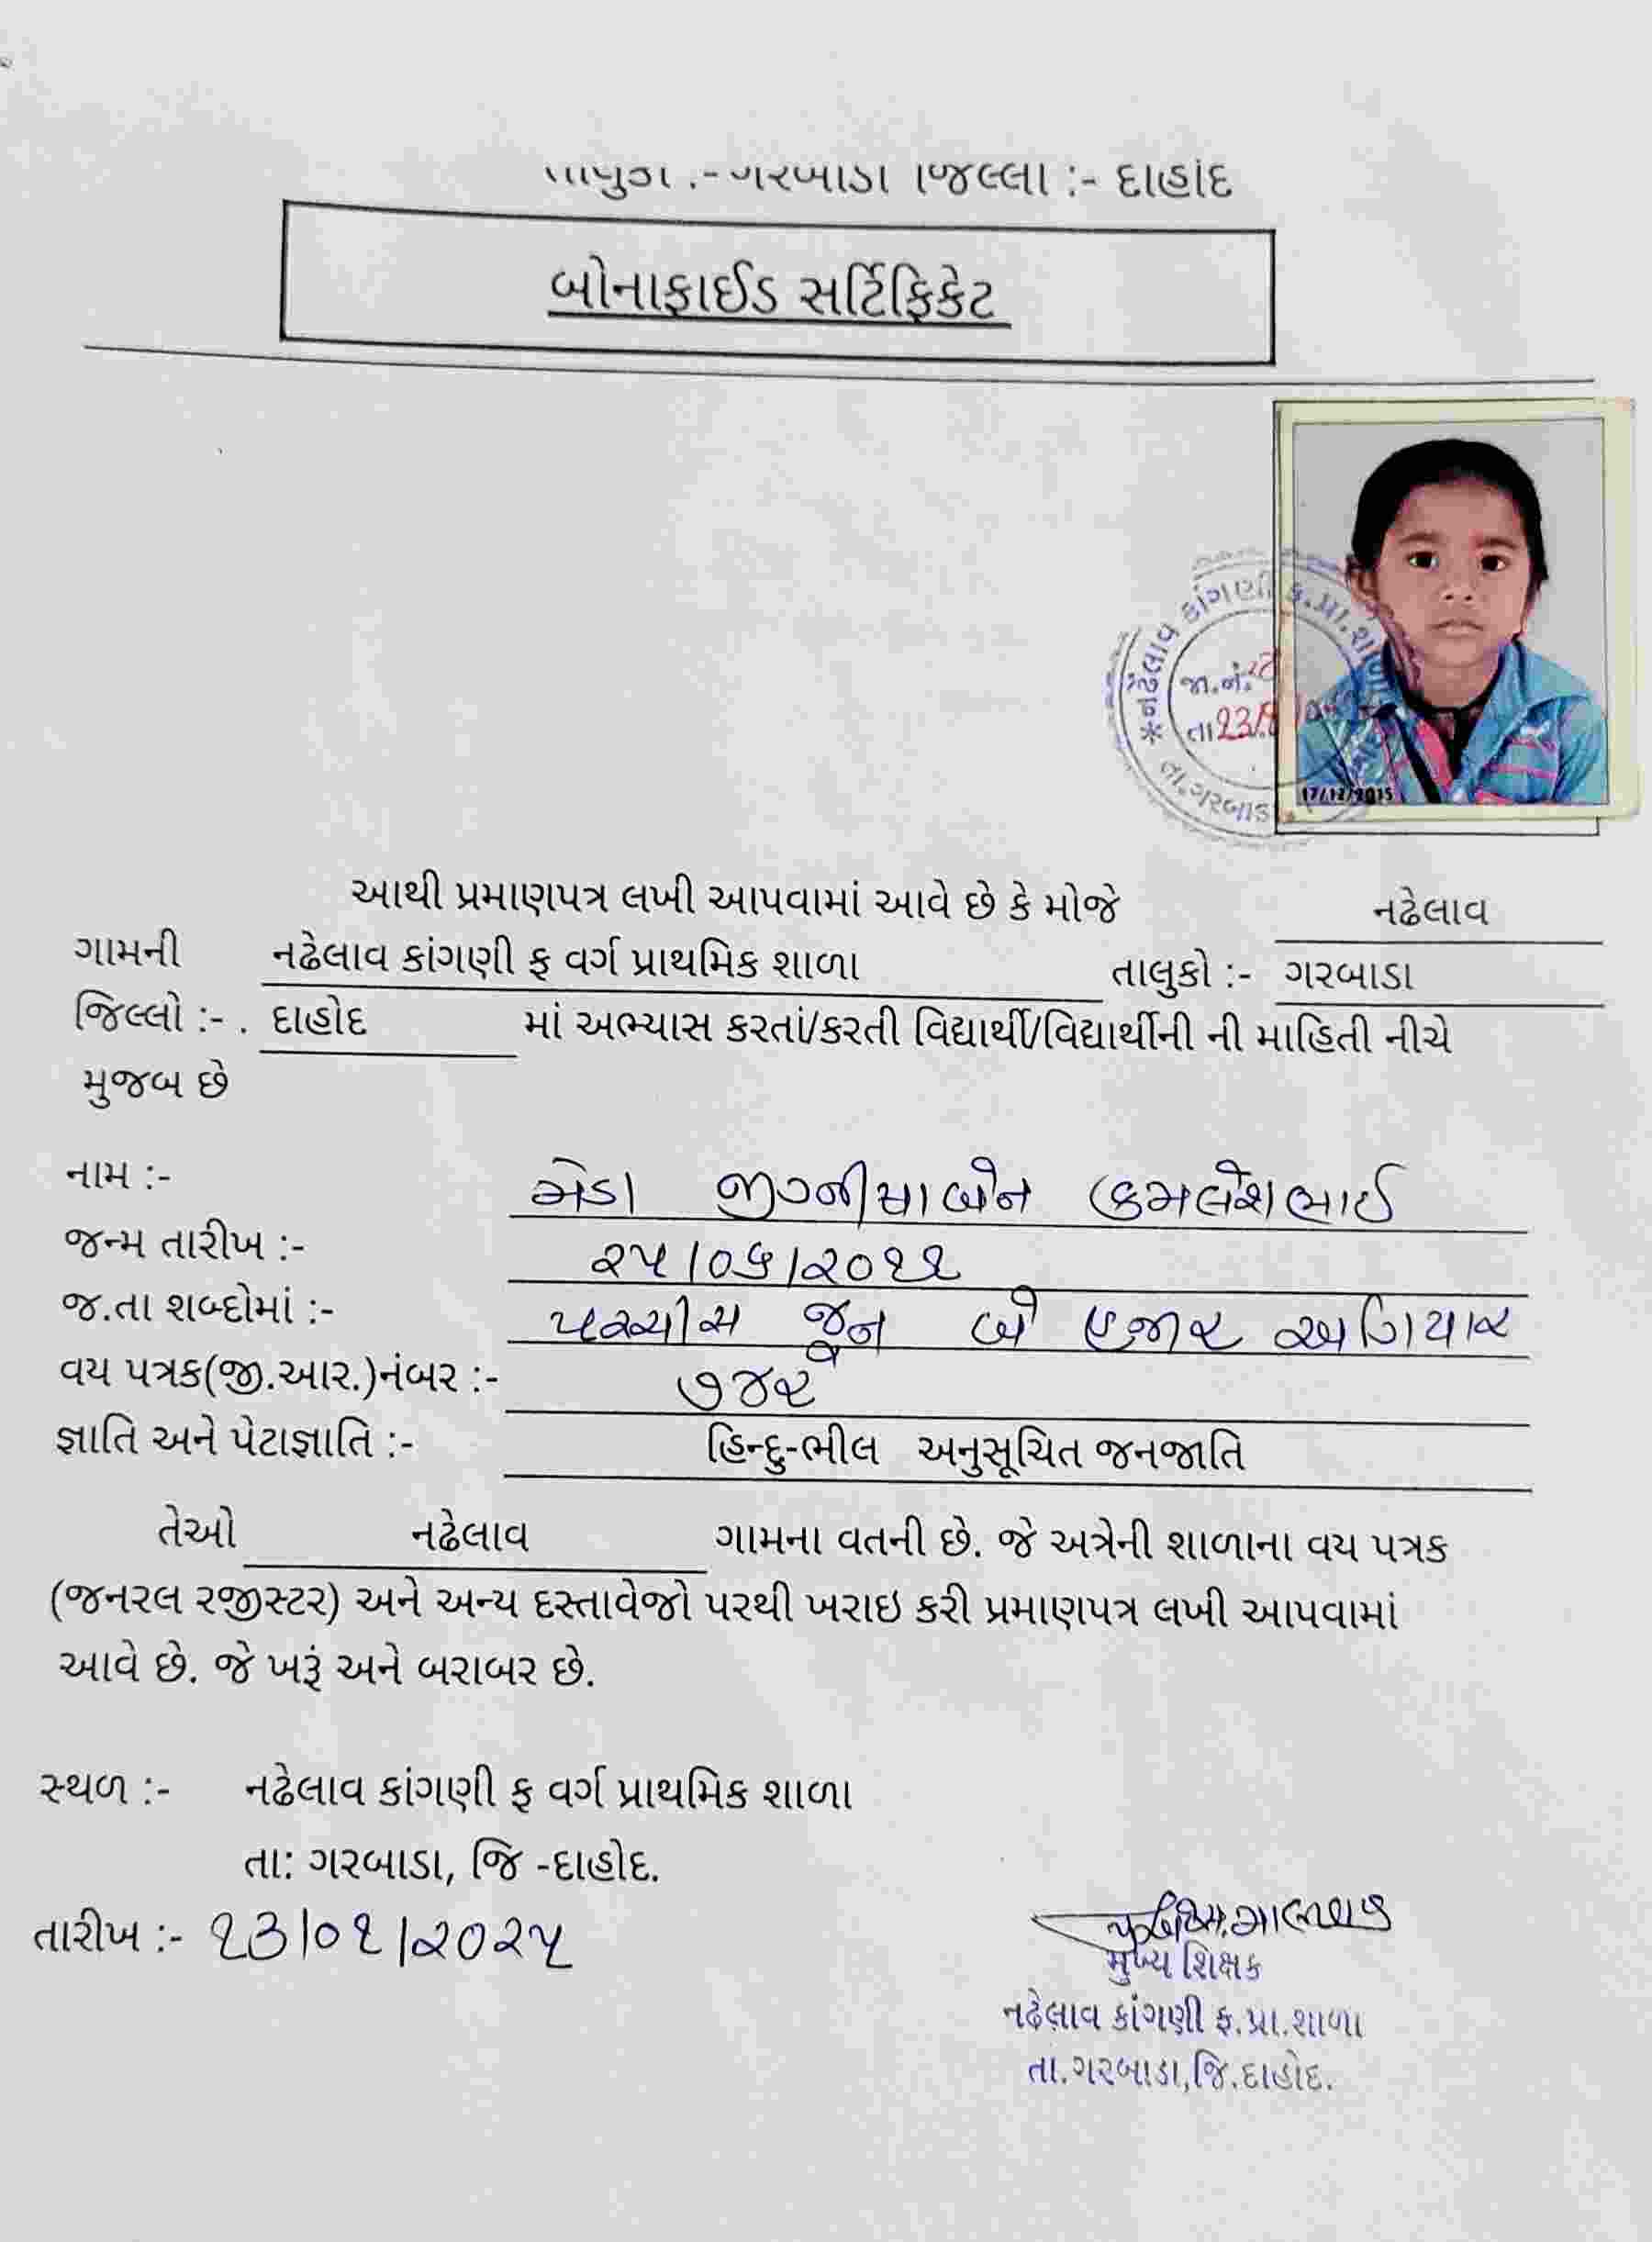 ગરબાડા જિલ્લા :- દાહોદ
બોનાફાઈડ સર્ટિફિકેટ
*નઢેલાવ કાંગણી ફ.પ્રા.શાળા
જા.નં.
તા
તા.ગરબાડા
17/12/2015
આથી પ્રમાણપત્ર લખી આપવામાં આવે છે કે મોજે નઢેલાવ
ગામની નઢેલાવ કાંગણી ફ વર્ગ પ્રાથમિક શાળા તાલુકો :- ગરબાડા
જિલ્લો :- . દાહોદ માં અભ્યાસ કરતાં/કરતી વિદ્યાર્થી/વિદ્યાર્થીની ની માહિતી નીચે
મુજબ છે
નામ :- મેડા જીગ્નીસાબેન કમલેશભાઈ
જન્મ તારીખ :- ૨૫/૦૬/૨૦૧૧
જ.તા શબ્દોમાં :- પચ્ચીસ જૂન બે હજાર અગિયાર
વય પત્રક(જી.આર.)નંબર :- ૭૪૨
જ્ઞાતિ અને પેટાજ્ઞાતિ :- હિન્દુ-ભીલ અનુસૂચિત જનજાતિ
તેઓ નઢેલાવ ગામના વતની છે. જે અત્રેની શાળાના વય પત્રક
(જનરલ રજીસ્ટર) અને અન્ય દસ્તાવેજો પરથી ખરાઇ કરી પ્રમાણપત્ર લખી આપવામાં
આવે છે. જે ખરૂં અને બરાબર છે.
સ્થળ :- નઢેલાવ કાંગણી ફ વર્ગ પ્રાથમિક શાળા
તા: ગરબાડા, જિ -દાહોદ.
તારીખ :- ૧૩/૦૧/૨૦૨૫
મુખ્ય શિક્ષક
નઢેલાવ કાંગણી ફ.પ્રા.શાળા
તા.ગરબાડા,જિ.દાહોદ.